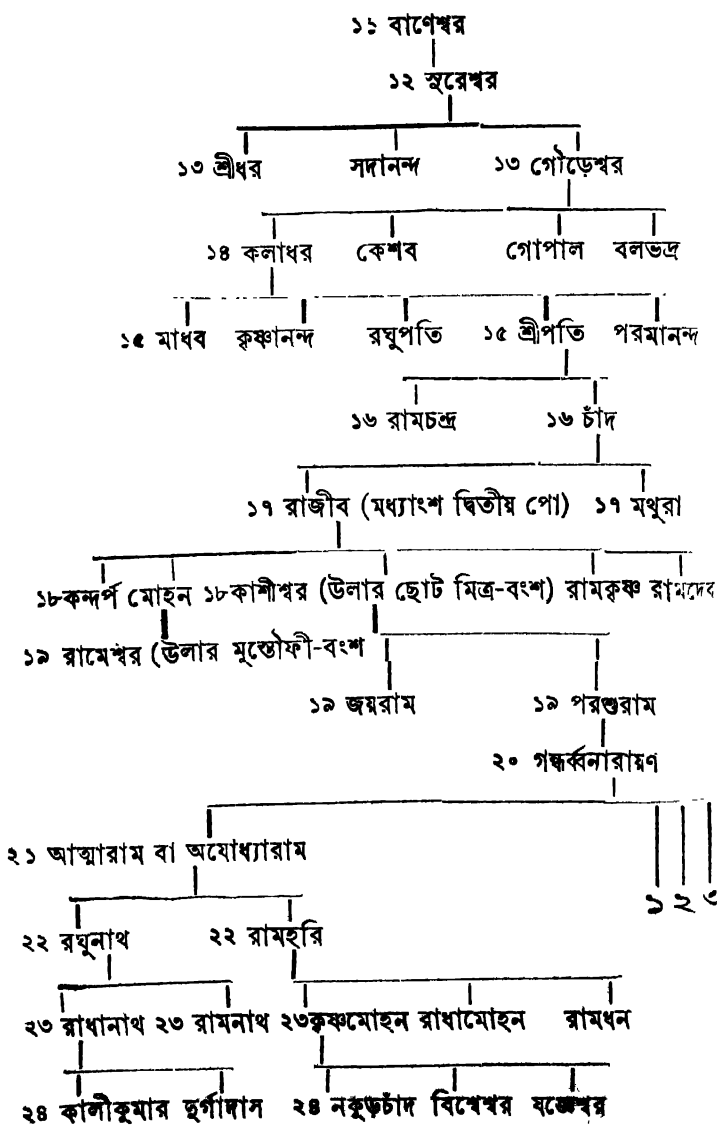 ১১ বাণেশ্বর
১২ সুরেশ্বর
১৩ শ্রীধর সদানন্দ ১৩ গৌড়েশ্বর
১৪ কলাধর কেশব গোপাল বলভদ্র
১৫ মাধব কৃষ্ণানন্দ রঘুপতি ১৫ শ্রীপতি পরমানন্দ
১৬ রামচন্দ্র ১৬ চাঁদ
১৭ রাজীব (মধ্যাংশ দ্বিতীয় পো) ১৭ মথুরা
১৮কন্দর্প মোহন ১৮কাশীশ্বর (উলার ছোট মিত্র-বংশ) রামকৃষ্ণ রামদেব
১৯ রামেশ্বর (উলার মুস্তৌফী-বংশ
১৯ জয়রাম ১৯ পরশুরাম
২০ গন্ধর্ব্বনারায়ণ
২১ আত্মারাম বা অযোধ্যারাম ১ ২ ৩
২২ রঘুনাথ ২২ রামহরি
২৩ রাধানাথ ২৩ রামনাথ ২৩কৃষ্ণমোহন রাধামোহন রামধন
২৪ কালীকুমার দুর্গাদাস ২৪ নকুড়চাঁদ বিশ্বেশ্বর যজ্ঞেশ্বর